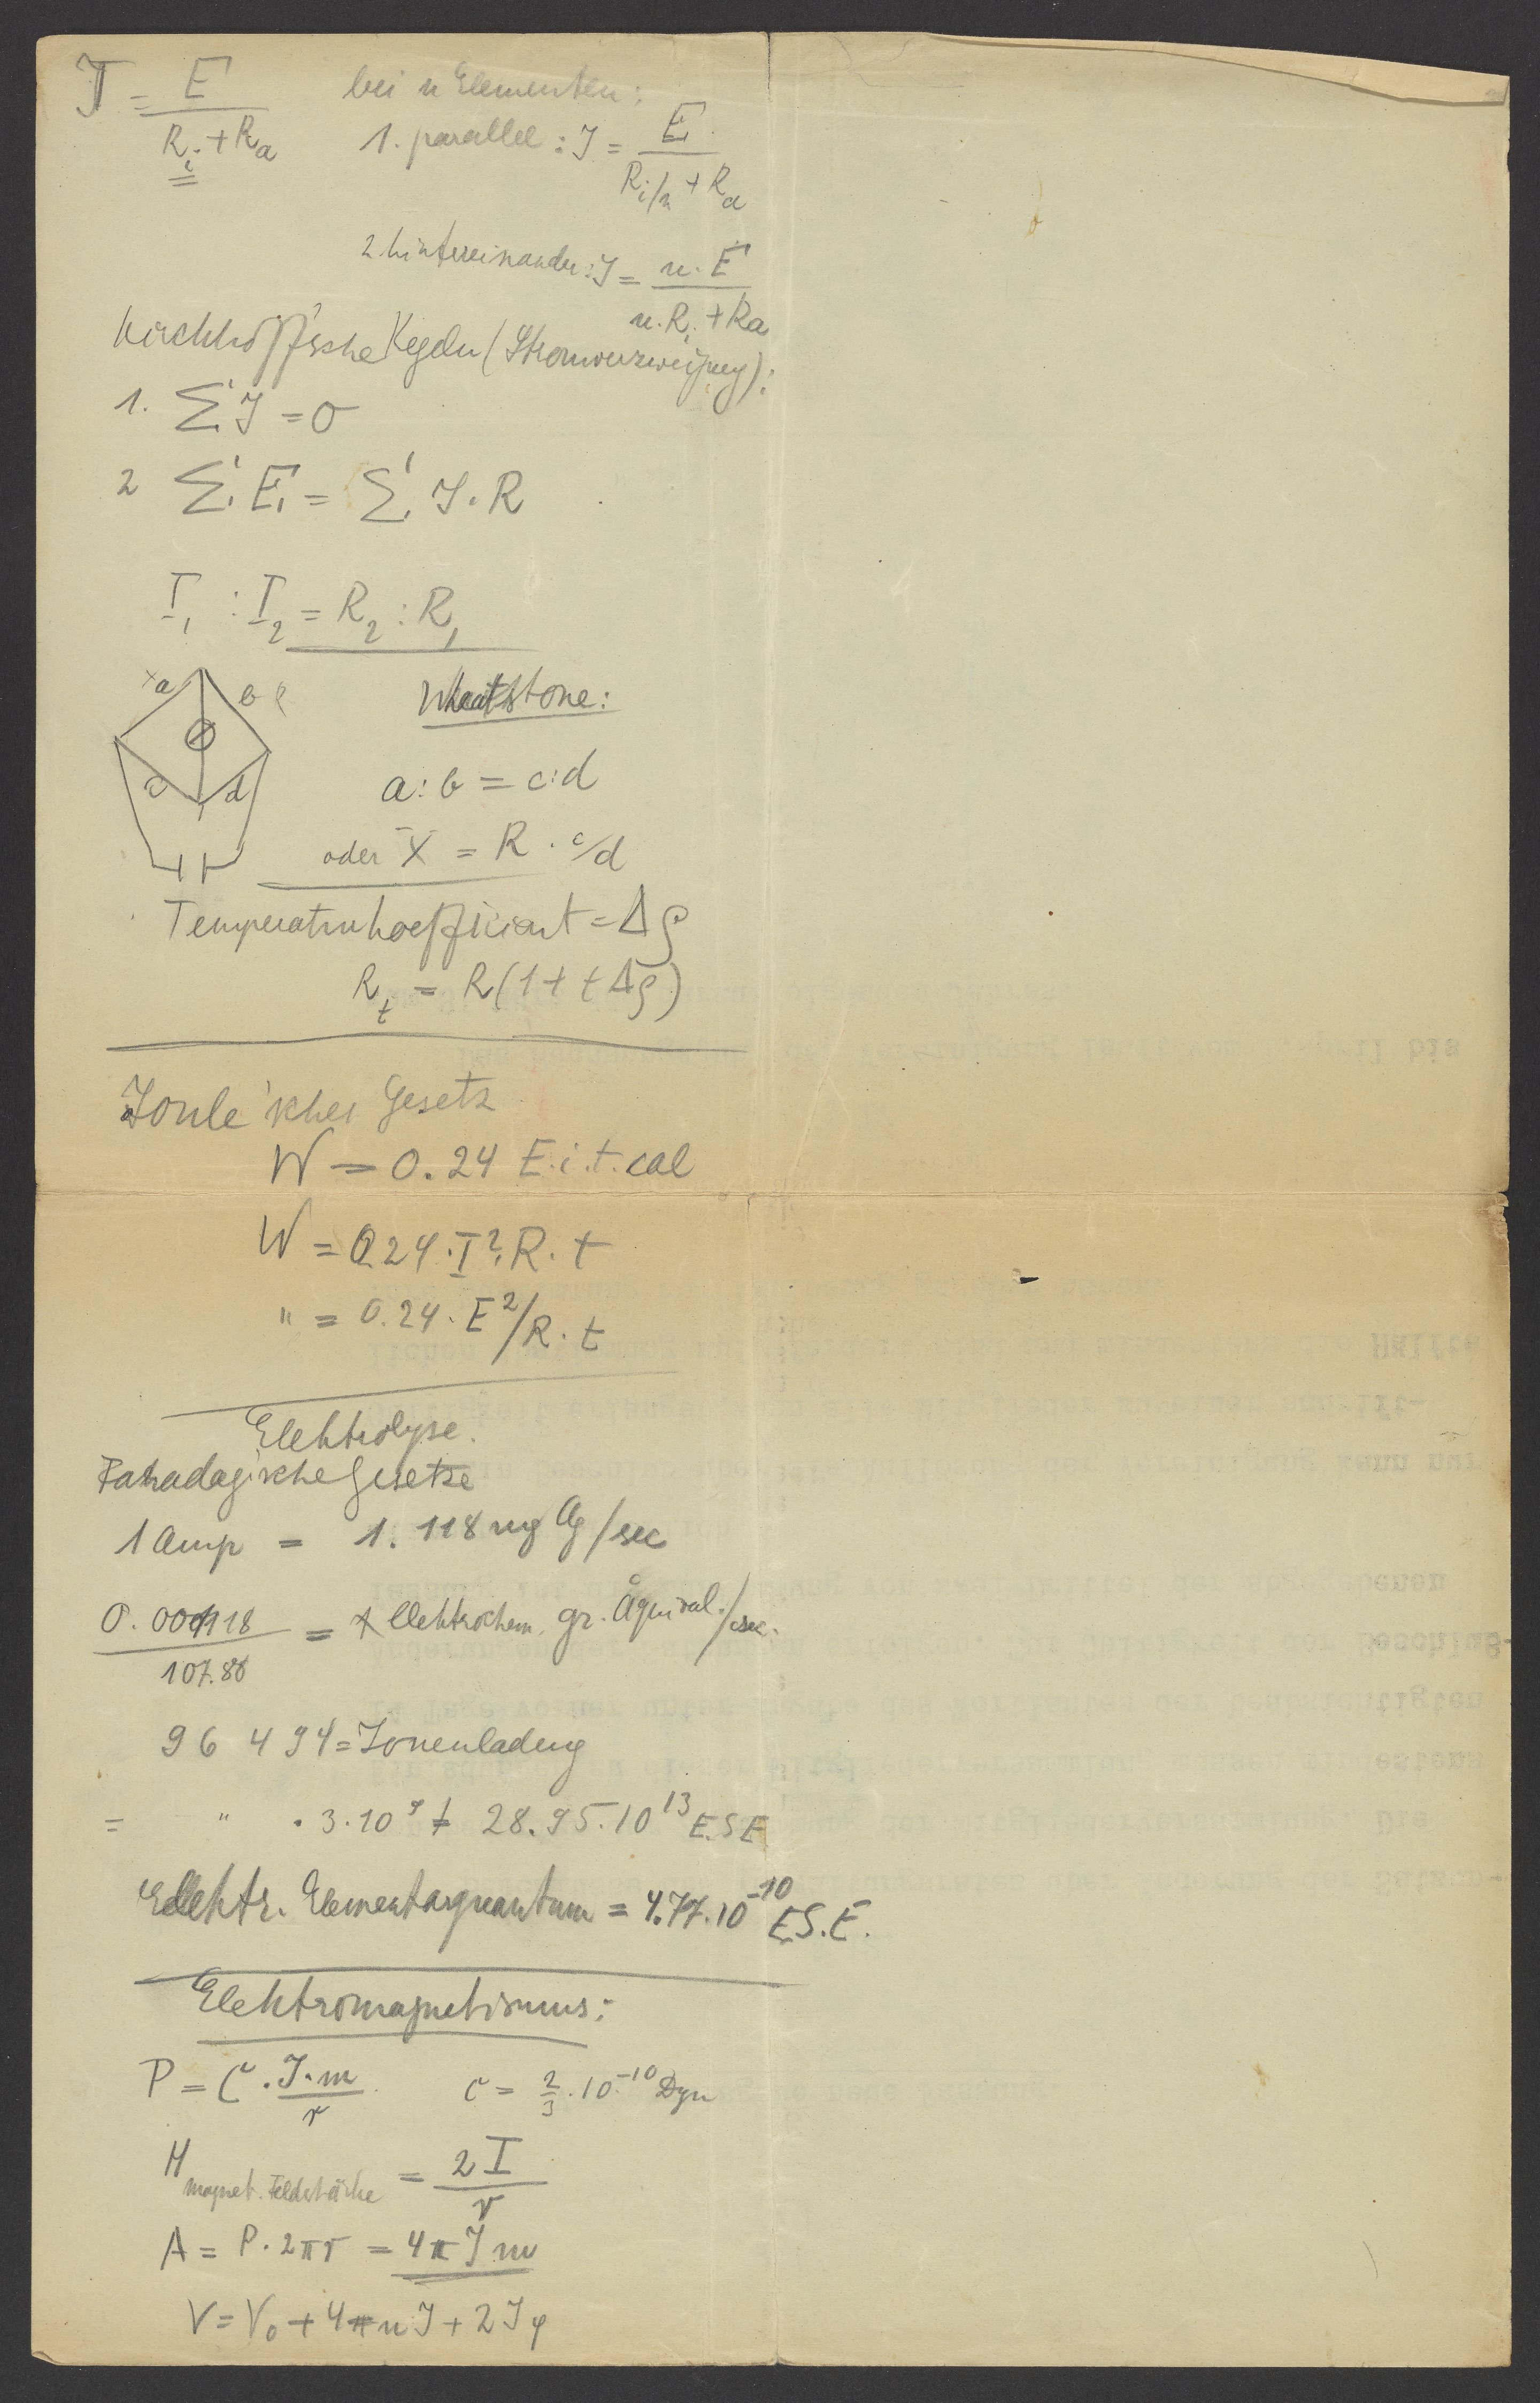 J = E / (Ri + Ra)
bei n Elementen:
1. parallel: J = E / (Ri/n + Ra)
2. hintereinander: J = n. E / (n. Ri + Ra)
Kirchhoff'sche Regeln (Stromverzweigung):
1. Σ J = 0
2 Σ E = Σ J. R
I1 : I2 = R2 : R1
x a b R
c d
Wheatstone:
a : b = c : d
oder X = R . c/d
Temperaturkoefficient = Δρ
Rt = R (1 + t Δρ)
Joule'sches Gesetz
W = 0.24 E. i. t. cal
W = 0.24 . I². R. t
" = 0.24 . E²/R . t
Elektrolyse.
Faradayische Gesetze
1 Amp = 1.118 mg Ag/sec
0.001118 / 107.88 = Elektrochem. gr. Äquival./sec.
96 494 = Jonenladung
= " . 3.10⁹ = 28.95.10¹³ E.S.E
Elektr. Elementarquantum = 4.77.10⁻¹⁰ E.S.E.
Elektromagnetismus:
P = C . J. m / r C = 2/3 . 10⁻¹⁰ Dyn
H magnet. Feldstärke = 2 I / r
A = P . 2πr = 4π J m
V = V0 + 4π n J + 2 J φ